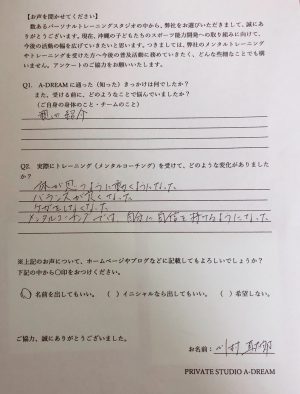 【お声を聞かせてください】
数あるパーソナルトレーニングスタジオの中から、弊社をお選びいただきまして、誠にあ
りがとうございます。現在、沖縄の子どもたちのスポーツ能力開発への取り組みに向けて、
今後の活動の幅を広げていきたいと思います。つきましては、弊社のメンタルトレーニング
やトレーニングを受けた方へ今後の普及活動に務めていきたく、どんな些細なことでも構い
ません。アンケートのご協力をお願いいたします。
Q1. A-DREAMに通った（知った）きっかけは何でしたか？
また、受ける前に、どのようなことで悩んでいましたか？
（ご自身の身体のこと・チームのこと）
親の紹介
Q2. 実際にトレーニング（メンタルコーチング）を受けて、どのような変化がありました
か？
体が思うように動くようになった
バランスが良くなった
ケガをしなくなった
メンタルコーチングでは、自分に自信を持てるようになった
※上記のお声について、ホームページやブログなどに記載してもよろしいでしょうか？
下記の中から〇印をおつけください。
(〇) 名前を出してもいい。 ( ) イニシャルなら出してもいい。 ( ) 希望しない。
ご協力、誠にありがとうございました。
お名前：村
PRIVATE STUDIO A-DREAM